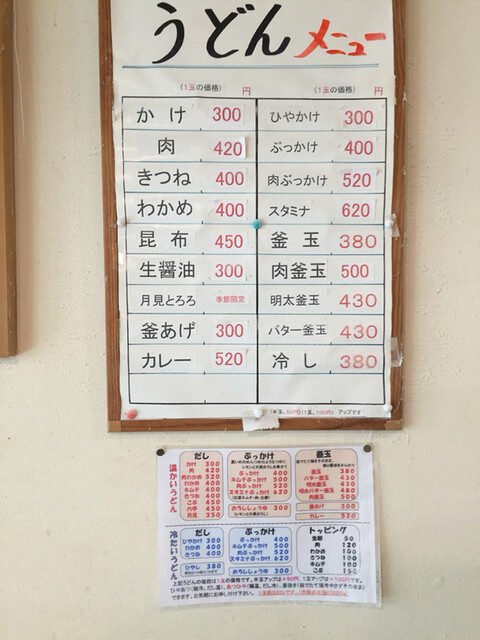 うどんメニュー
(1玉の価格) 円 (1玉の価格) 円
かけ 300 ひやかけ 300
肉 420 ぶっかけ 400
きつね 400 肉ぶっかけ 520
わかめ 400 スタミナ 620
昆布 450 釜玉 380
生醤油 300 肉釜玉 500
月見とろろ 季節限定 明太釜玉 430
釜あげ 300 バター釜玉 430
カレー 520 冷し 380
温かいうどん
だし
かけ 300
肉 420
肉わかめ 520
わかめ 400
キムチ 400
きつね 400
こぶ 450
月見 350
ぶっかけ
ぶっかけ 400
キムチぶっかけ 500
肉ぶっかけ 520
スタミナぶっかけ 620
おろししょうゆ 300
釜玉
釜玉 380
バター釜玉 430
明太釜玉 430
明太バター釜玉 480
肉釜玉 500
釜あげ 300
カレー 520
冷たいうどん
だし
ひやかけ 300
わかめ 400
きつね 400
ひやし 380
ぶっかけ
ぶっかけ 400
キムチぶっかけ 500
肉ぶっかけ 520
スタミナぶっかけ 620
おろししょうゆ 300
トッピング
生卵 50
肉 120
わかめ 100
きつね 100
キムチ 100
こぶ 150